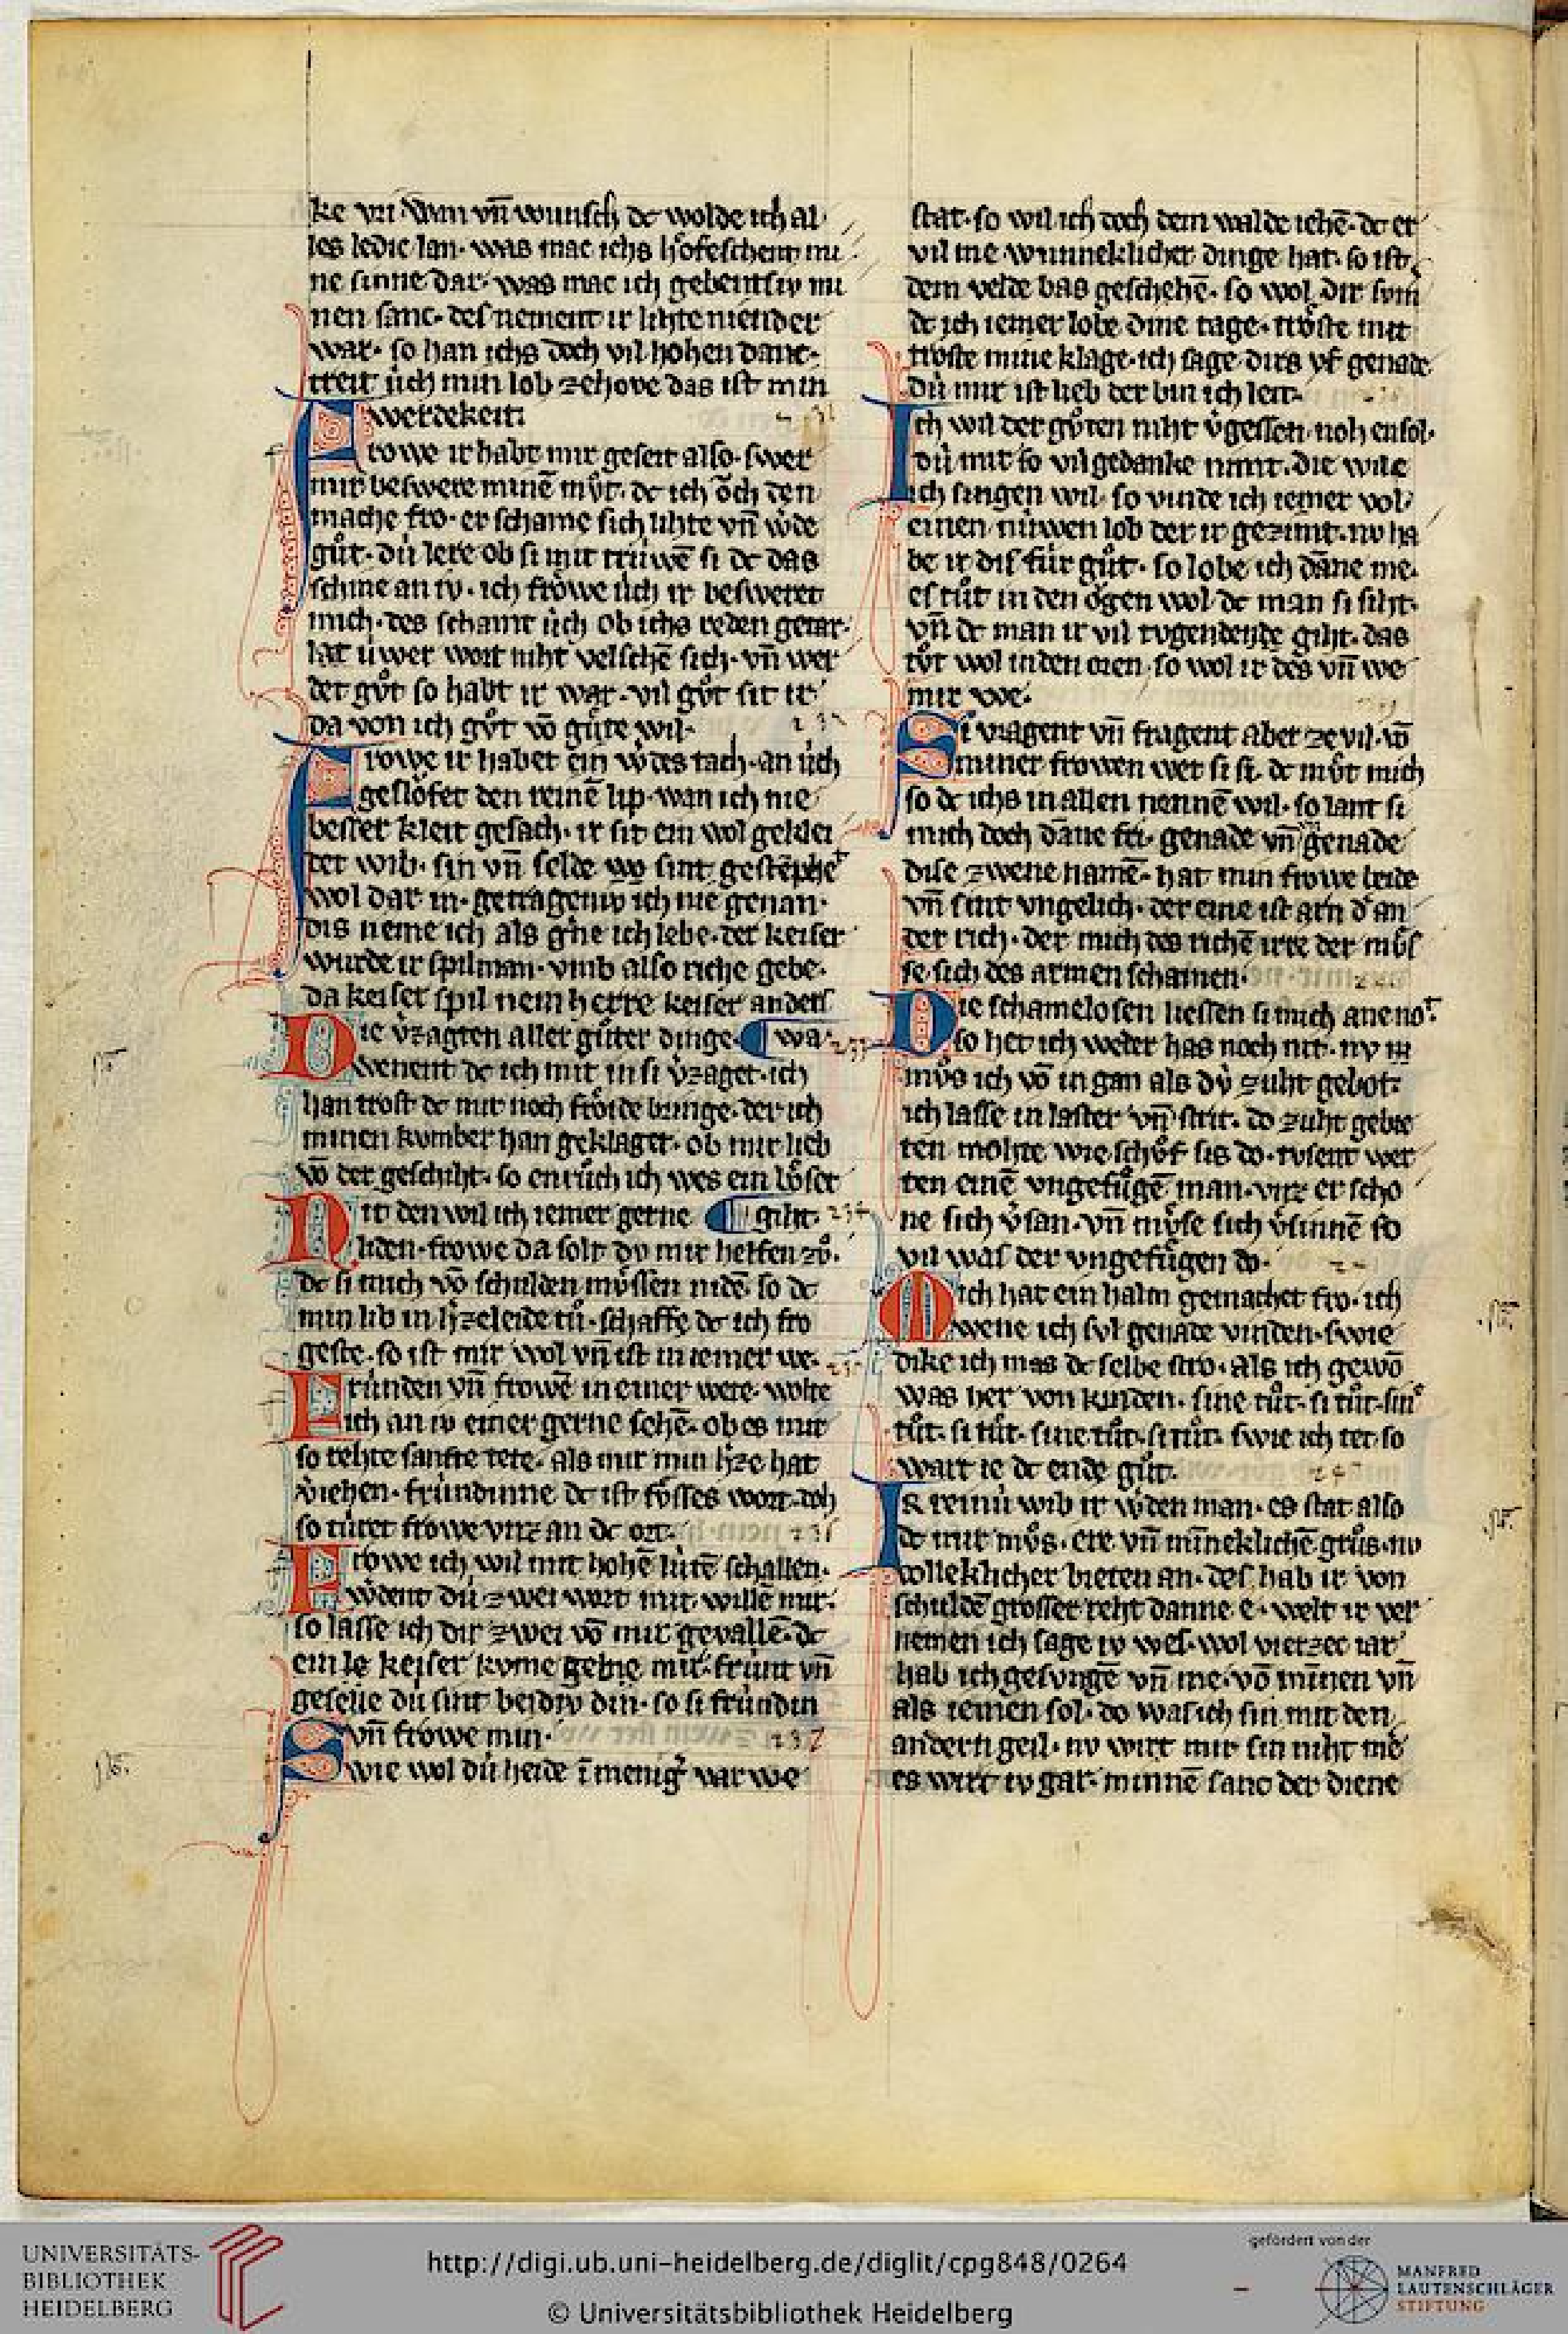 ke vn̄ wan vn̄ wunsch dc wolde ich al
les ledic lan. was mac ichs hͦfeschent mi
ne sinne dar. was mac ich gebent siv mi
nen sanc. des nement ir lihte niender
war. so han ichs doch vil hohen danc.
treit u̍ch min lob ze hove das ist min
werdekeit.
Frowe ir habt mir geseit also. swer
mir beswere minē mvͦt. dc ich ōch den
mache fro. er schame sich lihte vn̄ w̍de
guͦt. du̍ lere ob si mit tru̍wē si dc das
schine an iv. ich froͤwe u̍ch ir besweret
mich. des schamt u̍ch ob ichs reden getar.
lat u̍wer wort niht velschē sich. vn̄ wer
det gvͦt so habt ir war. vil gvͦt sit ir
da von ich gvͦt vō guͤte wil.
Frowe ir habet ein w̍des tach. an u̍ch
gesloͤfet den reinē lip. wan ich nie
besser kleit gesach. ir sit ein wol geklei
det wib. sin vn̄ selde sint gesteppet
wol dar in. getrageniv ich nie genan.
dis neme ich als g̍ne ich lebe. der keiser
wurde ir spilman. vmb also riche gebe.
da keiser spil nein herre keiser anders
Die v̍zagten aller guͦter dinge. wa. 233
wenent dc ich mit in si v̍zaget. ich
han trost dc mir noch froͤide bringe. der ich
minen kvmber han geklaget. ob mir lieb
vō der geschiht. so enruͦch ich wes ein boͤser
Nit den wil ich iemer gerne giht. 234
liden. frowe da solt dv mir helfen zvͦ.
dc si mich vō schulden mvͤssen nidē. so dc
min lib in h̍zeleide tuͦ. schaffe dc ich fro
geste. so ist mir wol vn̄ ist in iemer we. 235
Fru̍nden vn̄ frowē in einer wete. wolte
ich an iv einer gerne sehē. ob es mir
so rehte sanfte tete. als mir min h̍ze hat
v̍iehen. fru̍ndinne dc ist svͤsses wort. doh
so tu̍ret frowe vnz an dc ort. 236
Frowe ich wil mit hohē lu̍tē schallen.
w̍dent du̍ zwei wort mit willē mir.
so lasse ich dir zwei vō mir gevallē. dc
ein le keiser kvme gebe mir. fru̍nt vn̄
geselle du̍ sint beidiv din. so si fru̍ndin
vn̄ frowe min. 237
Swie wol du̍ heide ī menig̍ varwe
stat. so wil ich doch dem walde iehē. dc er
vil me wunneklicher dinge hat. so ist
dem velde bas geschehē. so wol dir svm̄
dc ich iemer lobe dine tage. troͤste mit
troste mine klage. ich sage dirs vf genade
du̍ mir ist lieb der bin ich leit.
Ich wil der gvͦten niht v̍gessen noh ensol.
du̍ mir so vil gedanke nimt. die wile
ich singen wil so vinde ich iemer vol
einen nu̍wen lob der ir gezimt. nv ha
be ir dis fu̍r guͦt. so lobe ich dāne me.
es tuͦt in den oͮgen wol dc man si siht.
vn̄ dc man ir vil tvgende giht. das
tvͦt wol in den oren. so wol ir des vn̄ we
mir we.
Si vragent vn̄ fragent aber ze vil. vō
miner frowen wer si si. dc mvͤt mich
so dc ichs in allen nennē wil. so lant si
mich doch dāne fri. genade vn̄ vngenade
dise zwene namē. hat min frowe beide
vn̄ sint vngelich. der eine ist arn d̍ an
der rich. der mich des richē irre der mvͦs
se sich des armen schamen.
Die schamelosen liessen si mich ane not.
so het ich weder has noch nit. nv
mvͦs ich vō in gan als dv̍ zuht gebot.
ich lasse in laster vn̄ strit. do zuht gebie
ten mohte wie schvͦf sis do. tvsent wer
ten einē vngefuͤgē man. vnz er scho
ne sich v̍san. vn̄ mvͤse sich v̍sinnē so
vil was der vngefuͤgen do.
Mich hat ein halm gemachet fro. ich
wene ich svl genade vinden. swie
dike ich mas dc selbe stro. als ich gewō
was her von kinden. sine tuͦt. si tuͦt. sin
tuͦt. si tuͦt. sine tuͦt. si tuͦt. swie ich tet so
wart ie dc ende guͦt.
Ir reinu̍ wib ir w̍den man. es stat also
dc mir mvͦs. ere vn̄ mīneklichē gruͦs. nv
volleklicher bieten an. des hab ir von
schuldē grosser reht danne e. welt ir ver
nemen ich sage iv wes. wol vierzec iar
hab ich gesvngē vn̄ me. vō minnen vn̄
als iemen sol. do was ich sin mit den
andern geil. nv wirt mir sin niht me
es wirt iv gar. minnē sanc der diene
UNIVERSITÄTS-
BIBLIOTHEK
HEIDELBERG
http://digi.ub.uni-heidelberg.de/diglit/cpg848/0264
© Universitätsbibliothek Heidelberg
gefördert von der
MANFRED
LAUTENSCHLÄGER
STIFTUNG